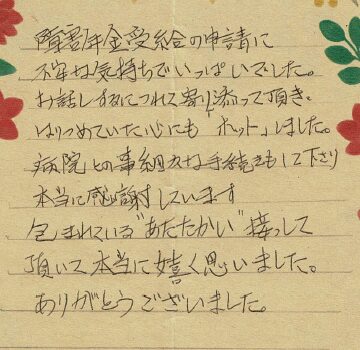 障害年金受給の申請に
不安な気持ちでいっぱいでした。
お話しするにつれて寄り添って頂き
はりつめていた心にも「ホット」しました。
病院との事細な手続きもして下さり
本当に感謝しています
包まれている"あたたかい"接して
頂いて本当に嬉く思いました。
ありがとうございました。